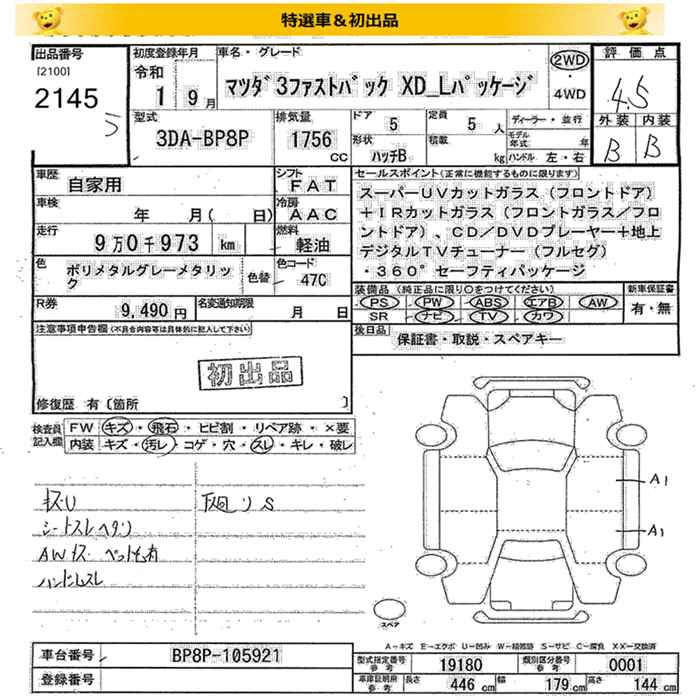 特選車＆初出品
出品番号
[2100]
2145
5
初度登録年月
令和
1 9月
車名・グレード
マツダ 3ファストバック XD_Lパッケージ
2WD
・
4WD
評価点
4.5
外装 内装
B B
型式
3DA-BP8P
排気量
1756
CC
ドア 5
定員 5 人
形状 ハッチB
積載 kg
ディーラー・並行
モデル年式 年
ハンドル 左・右
車歴
自家用
シフト
FAT
車検
年 月( 日)
冷房
AAC
走行
9万0千973 km
燃料
軽油
色
ポリメタルグレーメタリック
色替
色コード
47C
R券
9,490円
名変通知期限
月 日
セールスポイント(正常に機能するものに限ります)
スーパーUVカットガラス（フロントドア）
＋IRカットガラス（フロントガラス／フロ
ントドア）、CD／DVDプレーヤー＋地上
デジタルTVチューナー（フルセグ）
・360°セーフティパッケージ
装備品(純正品に限り○をつけてください)
PS PW ABS エアB AW
SR ナビ TV カワ
新車保証書
有・無
後日品
保証書・取説・スペアキー
注意事項申告欄(不具合内容等は具体的に記入して下さい)
初出品
修復歴 有〔箇所 〕
検査員記入欄
FW キズ・飛石・ヒビ割・リペア跡・×要
内装 キズ・汚レ・コゲ・穴・スレ・キレ・破レ
キズU
シートスレヘタリ
AWキズ ペット毛有
ハンドルスレ
下廻リS
A1
A1
スペア
A－キズ E－エクボ U－凹み W－補修跡 S－サビ C－腐食 XX－交換済
車台番号
BP8P-105921
登録番号
型式指定番号 参考
19180
類別区分番号 参考
0001
車庫証明用 参考
長さ 446 cm
幅 179 cm
高さ 144 cm